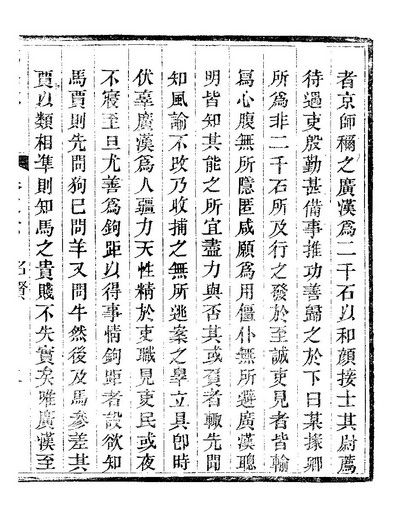 者京師稱之廣漢爲二千石以和顏接士其尉薦
待遇吏殷勤甚備事推功善歸之於下曰某掾卿
所爲非二千石所及行之發於至誠吏見者皆輸
寫心腹無所隱匿咸願爲用僵仆無所避廣漢聰
明皆知其能之所宜盡力與否其或負者輒先聞
知風諭不改乃收捕之無所逃案之辠立具卽時
伏辜廣漢爲人彊力天性精於吏職見吏民或夜
不寢至旦尤善爲鉤距以得事情鉤距者設欲知
馬賈則先問狗巳問羊又問牛然後及馬參差其
賈以類相準則知馬之貴賤不失實矣唯廣漢至
名賢